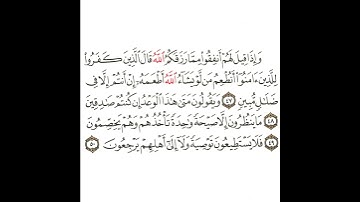 وَإِذَا قِيلَ لَهُمْ أَنفِقُوا مِمَّا رَزَقَكُمُ اللَّهُ قَالَ الَّذِينَ كَفَرُوا
لِلَّذِينَ ءَامَنُوا أَنُطْعِمُ مَن لَّوْ يَشَاءُ اللَّهُ أَطْعَمَهُ إِنْ أَنتُمْ إِلَّا فِي
ضَلَالٍ مُّبِينٍ ٤٧ وَيَقُولُونَ مَتَى هَذَا الْوَعْدُ إِن كُنتُمْ صَادِقِينَ
٤٨ مَا يَنظُرُونَ إِلَّا صَيْحَةً وَاحِدَةً تَأْخُذُهُمْ وَهُمْ يَخِصِّمُونَ
٤٩ فَلَا يَسْتَطِيعُونَ تَوْصِيَةً وَلَا إِلَى أَهْلِهِمْ يَرْجِعُونَ ٥٠